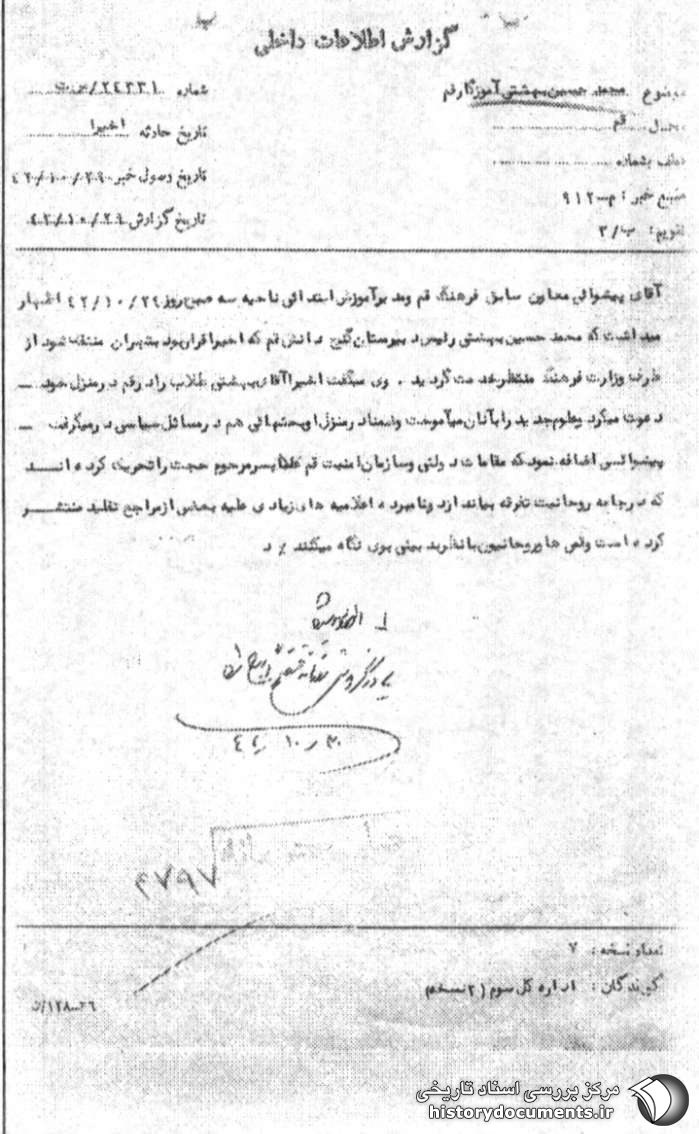 گزارش اطلاعات داخلی
موضوع محمد حسین بهشتی آموزگار قم
شماره ۲۴۳۳۱/
محل قم
تاریخ حادثه اخیرا
عطف بشماره
تاریخ وصول خبر ۴۲/۱۰/۲۹
منبع خبر : ۹۱۲
تاریخ گزارش ۴۲/۱۰/۲۹
تقویم : ب/۳
آقای پیشوائی معاون سابق فرهنگ قم ومدیرآموزش ابتدائی ناحیه سه صبح روز ۴۲/۱۰/۲۴ اظهار
میداشت که محمد حسین بهشتی رئیس دبیرستان دانش قم که اخیرا قرار بود بتهران منتقل شود از
طرف وزارت فرهنگ منتظر خدمت گردید . وی میگفت اخیرا آقای بهشتی طلاب را در قم در منزل خود
دعوت میکرد وعلوم جدید را بآنان میآموخت وضمنا در منزل او بحثهائی هم در مسائل سیاسی در میگرفت
پیشوائی اضافه نمود که مقامات دولتی وسازمان امنیت قم پسر مرحوم حجت را تحریک کرده اند
که در جامعه روحانیت تفرقه بیاندازد ونامبرده اعلامیه های زیادی علیه بعضی از مراجع تقلید منتشر
کرده است ولی روحانیون با نظر بدبینی بوی نگاه میکنند
۴۲/۱۰/۳۰
۴۷۹۷
تعداد نسخه : ۷
گیرندگان : اداره کل سوم (۲ نسخه)
مرکز بررسی اسناد تاریخی
historydocuments.ir